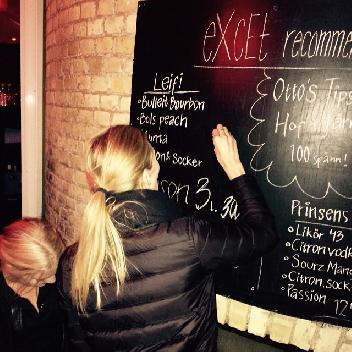 eXCEt recomme
Leifi
• Bulleit Bourbon
• Bols peach
n & Socker
Otto's Tips
Hof
100 spänn!
3.
Prinsens
• Likör 43
• Citronvodk
• Sourz Man
• Citron, sock
• Passion 12